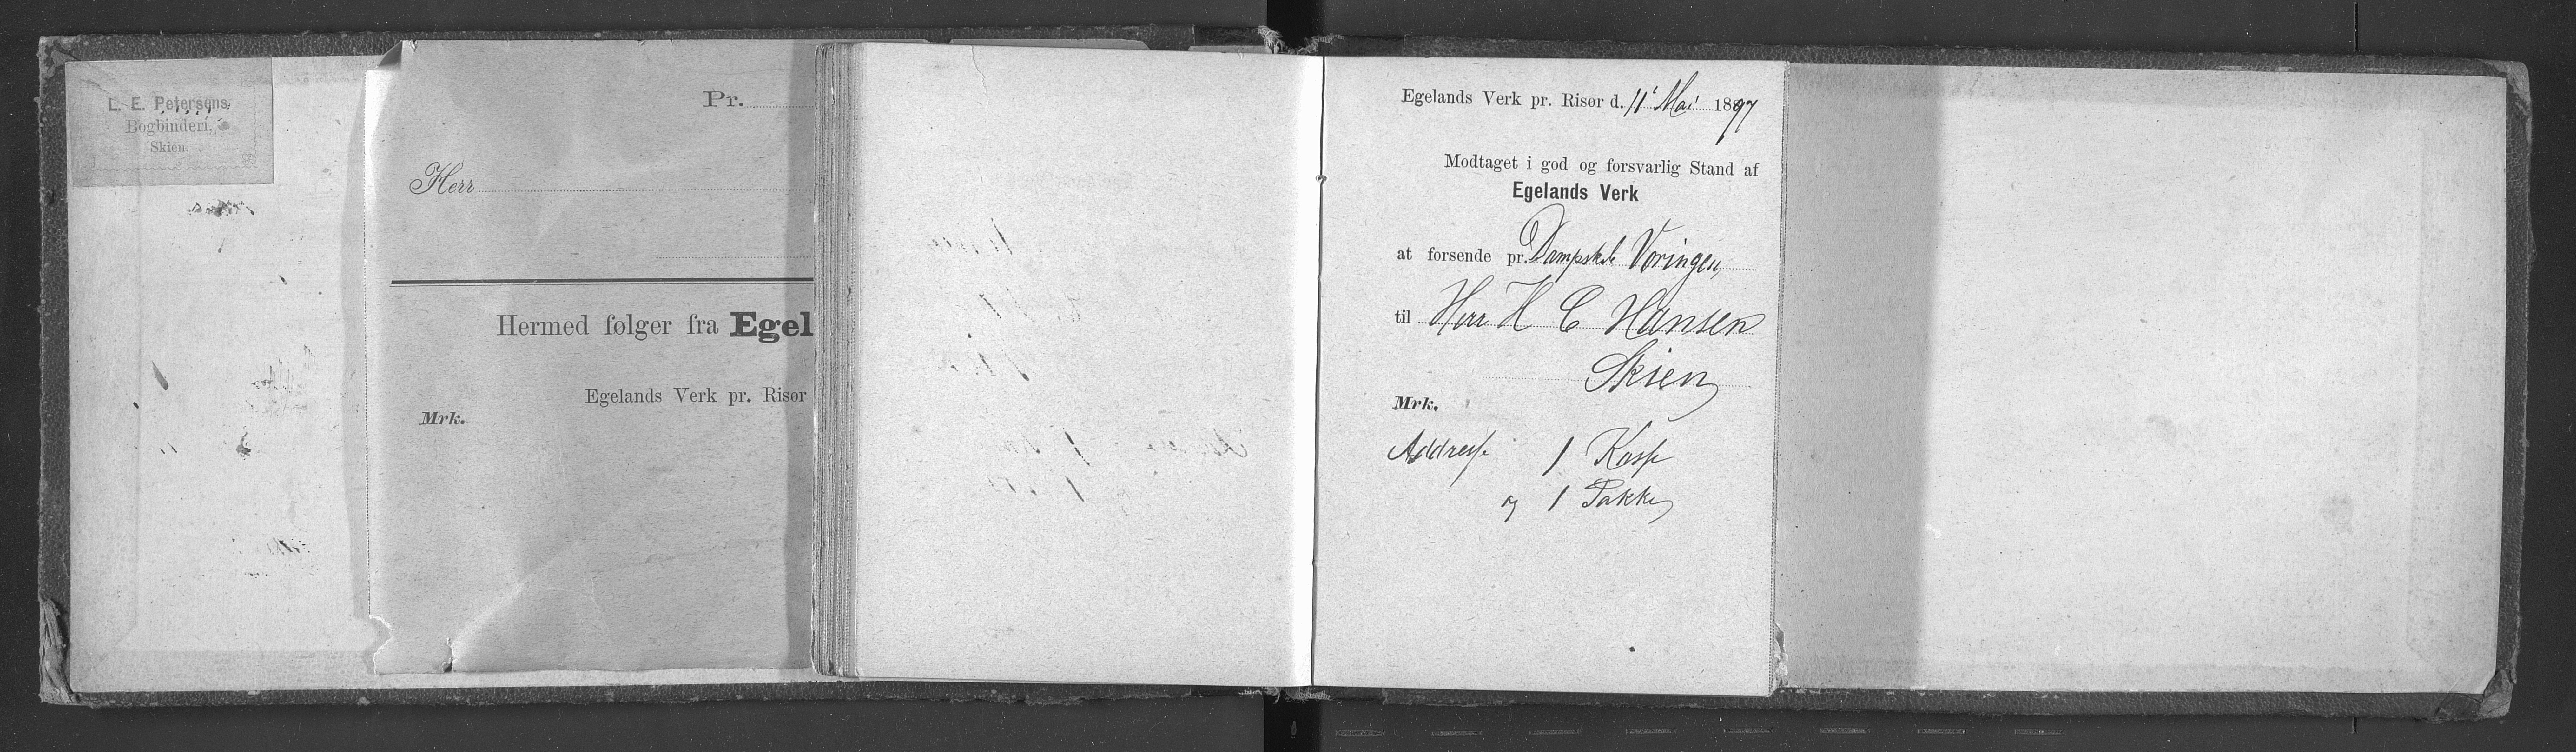 L. E. Petersens
Bogbinderi.
Skien.
Pr.
Herr
Hermed følger fra Egel
Egelands Verk pr. Risør
Mrk.
Egelands Verk pr. Risør d. 11' Mai 1897
Modtaget i god og forsvarlig Stand af
Egelands Verk
at forsende pr. Dampskb Vøringen
til Herr H C Hansen
Skien
Mrk.
Addresse 1 Kasse
og 1 Pakke